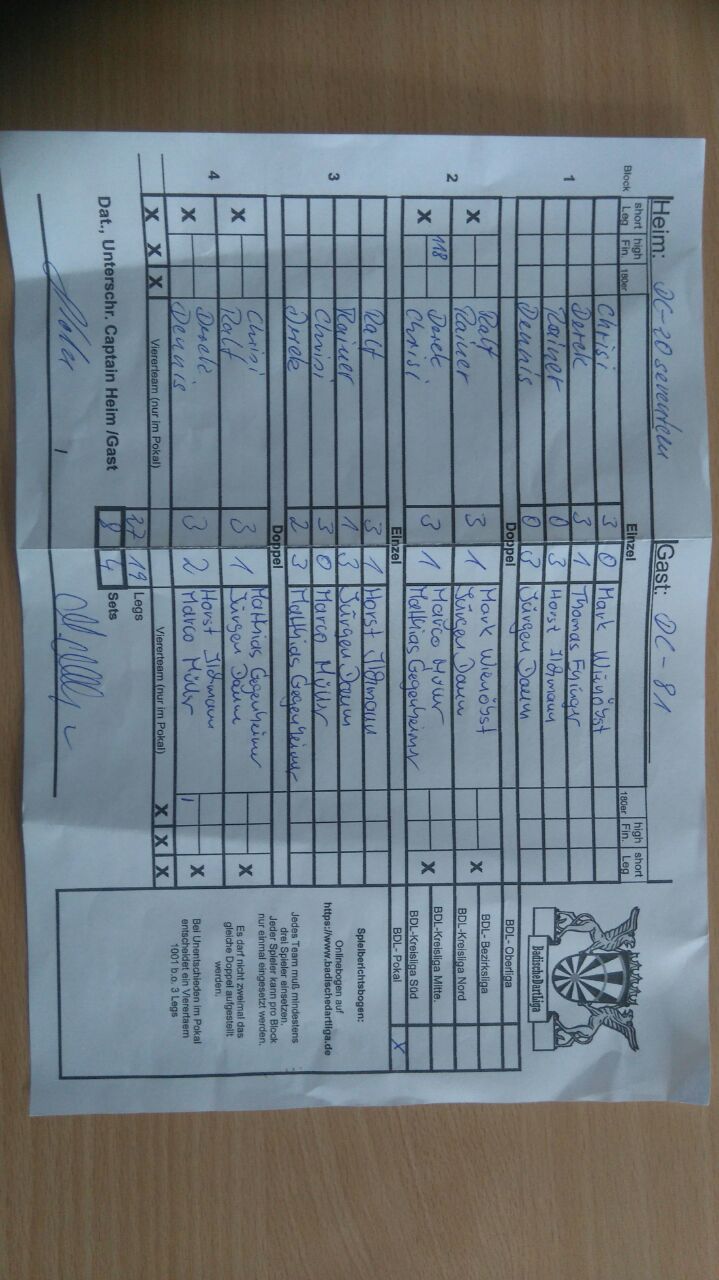 Heim: DC-20 seventeen Gast: DC-81
Block short Leg high Fin. 180er Einzel 180er high Fin. short Leg
1 Chrisi 3 0 Mark Wienöbst
Derek 3 1 Thomas
Rainer 0 3 Horst
Dennis 0 3 Jürgen Daum
Doppel
2 X Ralf Rainer 3 1 Mark Wienöbst Jürgen Daum X
X 118 Derek Chrisi 3 1 Marco Müller Matthias Gegenheimer X
Einzel
3 Ralf 3 1 Horst
Rainer 1 3 Jürgen Daum
Chrisi 3 0 Marco Müller
Derek 2 3 Matthias Gegenheimer
Doppel
4 X Chrisi Ralf 3 1 Matthias Gegenheimer Jürgen Daum X
X Derek Dennis 3 2 Horst Marco Müller 1 X
X X X Viererteam (nur im Pokal) Viererteam (nur im Pokal) X X X
27 19 Legs
Dat., Unterschr. Captain Heim /Gast 8 4 Sets
BadischeDartLiga
BDL- Oberliga
BDL- Bezirksliga
BDL-Kreisliga Nord
BDL-Kreisliga Mitte.
BDL-Kreisliga Süd
BDL- Pokal X
Spielberichtsbogen:
Onlinebogen auf
https://www.badischedartliga.de
Jedes Team muß mindestens
drei Spieler einsetzen.
Jeder Spieler kann pro Block
nur einmal eingesetzt werden.
Es darf nicht zweimal das
gleiche Doppel aufgestellt
werden.
Bei Unentschieden im Pokal
entscheidet ein Vierertaem
1001 b.o. 3 Legs